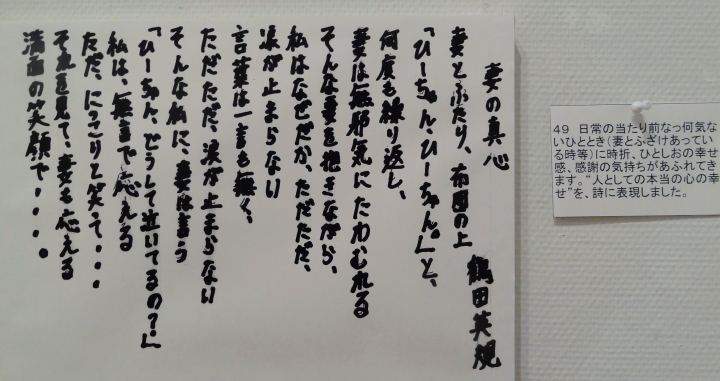 妻の真心
鶴田英規
妻とふたり、布団の上
「ひーちゃん、ひーちゃん。」と、
何度も繰り返し、
妻は無邪気にたわむれる
そんな妻を抱きながら、
私はなぜだか、ただただ、
涙が止まらない
言葉は一言も無く、
ただただ、涙が止まらない
そんな私に、妻は言う
「ひーちゃん、どうして泣いてるの?」
私は、無言で応える
ただ、にっこりと笑って・・・
それを見て、妻も応える
満面の笑顔で・・・・。
49 日常の当たり前なっ何気な
いひととき(妻とふざけあってい
る時等)に時折、ひとしおの幸せ
感、感謝の気持ちがあふれてき
ます。“人としての本当の心の幸
せ”を、詩に表現しました。